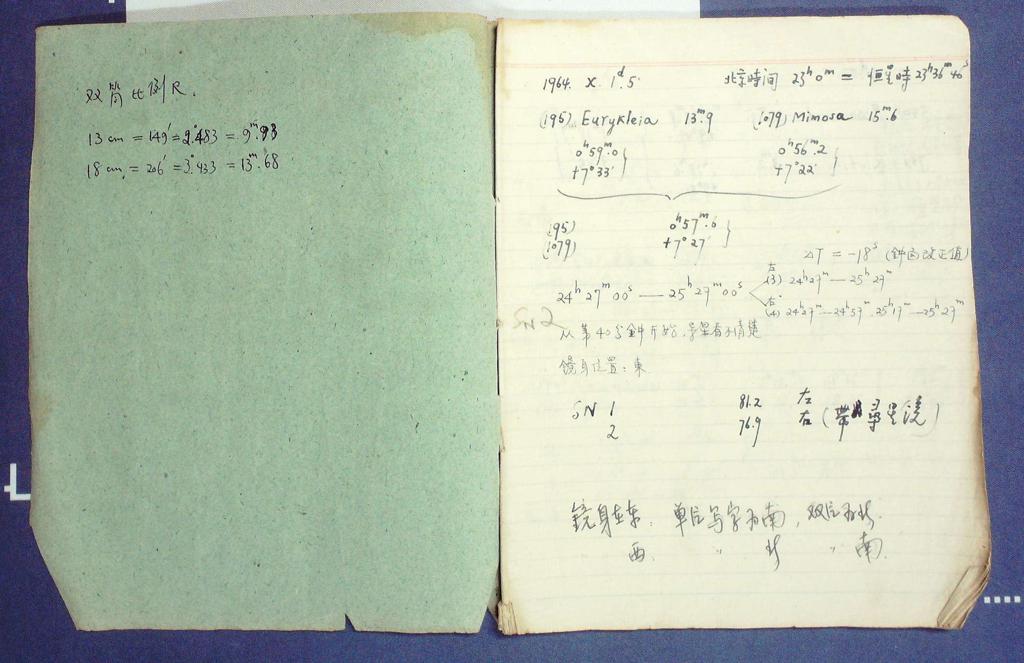 双筒比例尺.
13 cm = 149′ = 2°.483 = 9ᵐ.93
18 cm. = 206′ = 3°.433 = 13ᵐ.68
1964. X. 1ᵈ.5
北京時间 23ʰ 0ᵐ = 恒星時 23ʰ36ᵐ40ˢ
(195) Eurykleia 13ᵐ.9 (1079) Mimosa 15ᵐ.6
0ʰ59ᵐ.0 } 0ʰ56ᵐ.2 }
+7°33′ +7°22′
(195) 0ʰ57ᵐ.6 }
(1079) +7°27′
ΔT = -18ˢ (鈡面改正值)
24ʰ27ᵐ00ˢ — 25ʰ27ᵐ00ˢ
左(3) 24ʰ27ᵐ — 25ʰ27ᵐ
右(4) 24ʰ27ᵐ — 24ʰ57ᵐ, 25ʰ17ᵐ — 25ʰ27ᵐ
SN2
从第40分鈡开始, 导星看不清楚
鏡身位置: 東
SN 1 81.2 左
2 76.9 右 (帶尋星鏡)
鏡身在东. 单后写字为南, 双后为北.
西. 〃 北 〃 南.